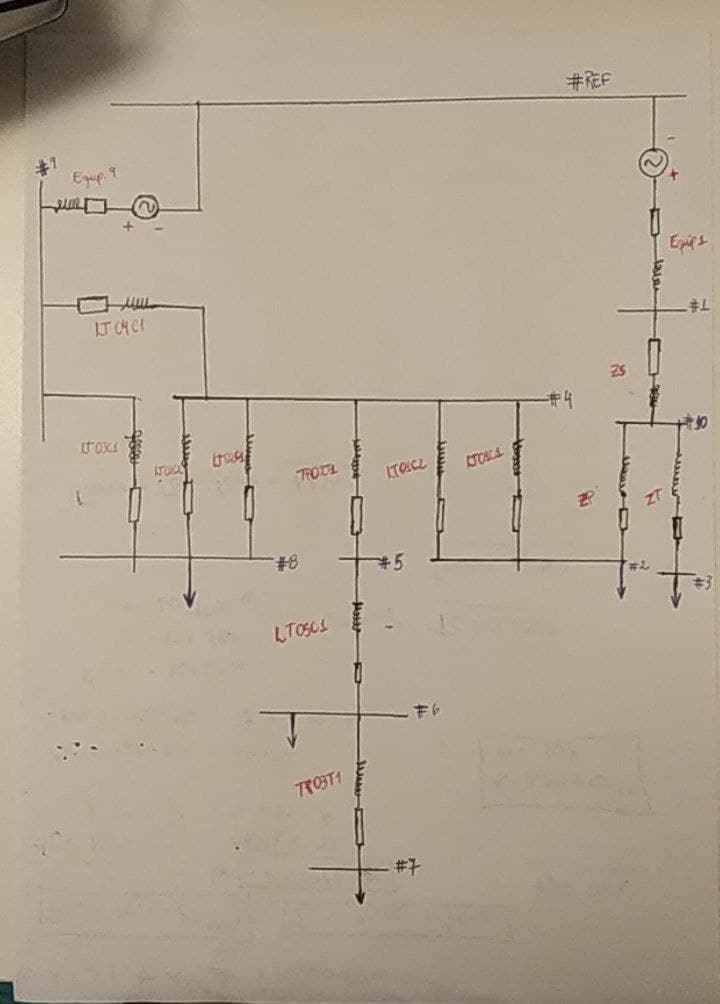 #REF
#9
Equip.9
Equip1
#1
LT04C1
ZS
#4
#10
LT03C1
LT02C1
TR02T1
LT01C2
LT01C1
ZP
ZT
#8
#5
#2
#3
LT05C1
#6
TR03T1
#7